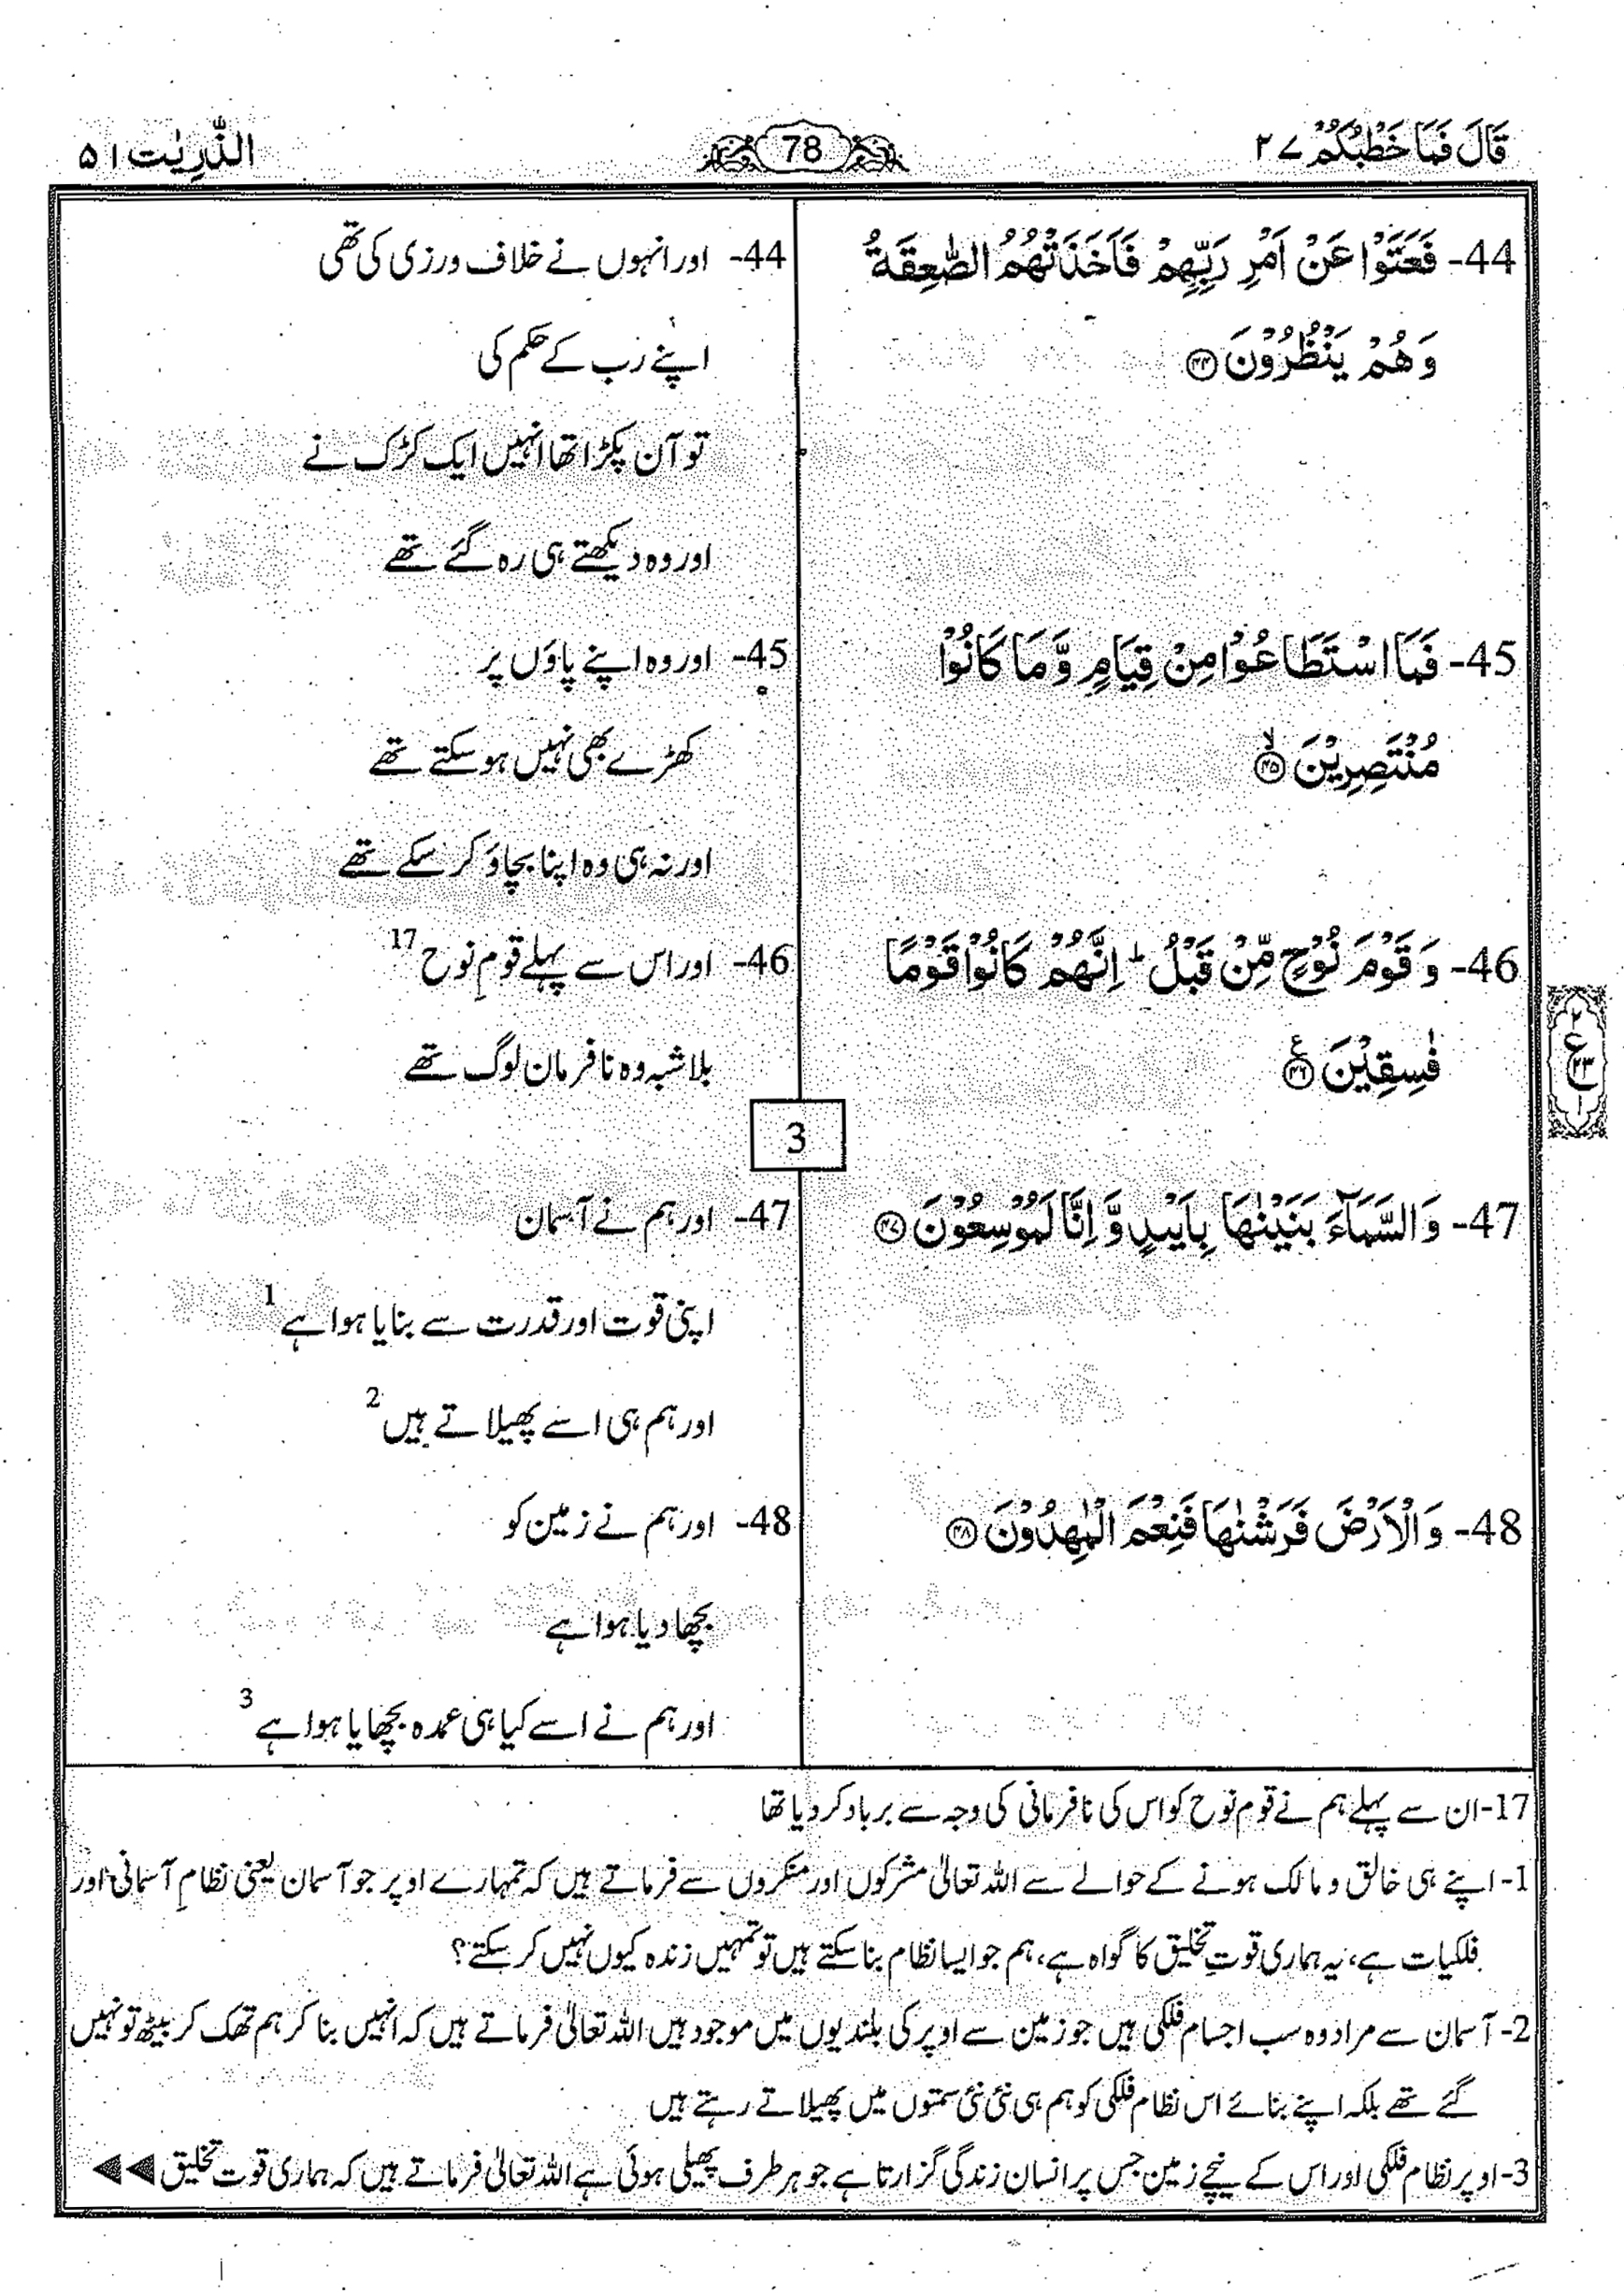 قَالَ فَمَا خَطْبُكُمْ ۲۷
78
الذّٰرِیٰت ۵۱
44- فَعَتَوْا عَنْ اَمْرِ رَبِّهِمْ فَاَخَذَتْهُمُ الصّٰعِقَةُ
وَ هُمْ یَنْظُرُوْنَ ﴿۴۴﴾
45- فَمَا اسْتَطَاعُوْا مِنْ قِیَامٍ وَّ مَا كَانُوْا
مُنْتَصِرِیْنَ ۙ﴿۴۵﴾
46- وَ قَوْمَ نُوْحٍ مِّنْ قَبْلُ ؕ اِنَّهُمْ كَانُوْا قَوْمًا
فٰسِقِیْنَ ﴿۴۶﴾ ع
47- وَ السَّمَآءَ بَنَیْنٰهَا بِاَیْىدٍ وَّ اِنَّا لَمُوْسِعُوْنَ ﴿۴۷﴾
48- وَ الْاَرْضَ فَرَشْنٰهَا فَنِعْمَ الْمٰهِدُوْنَ ﴿۴۸﴾
44- اور انہوں نے خلاف ورزی کی تھی
اپنے رب کے حکم کی
تو آن پکڑا تھا انہیں ایک کڑک نے
اور وہ دیکھتے ہی رہ گئے تھے
45- اور وہ اپنے پاؤں پر
کھڑے بھی نہیں ہو سکتے تھے
اور نہ ہی وہ اپنا بچاؤ کر سکے تھے
46- اور اس سے پہلے قومِ نوح 17
بلاشبہ وہ نافرمان لوگ تھے
3
47- اور ہم نے آسمان
اپنی قوت اور قدرت سے بنایا ہوا ہے 1
اور ہم ہی اسے پھیلاتے ہیں 2
48- اور ہم نے زمین کو
بچھا دیا ہوا ہے
اور ہم نے اسے کیا ہی عمدہ بچھایا ہوا ہے 3
۲
ع
۲۳
۱
17- ان سے پہلے ہم نے قوم نوح کو اس کی نافرمانی کی وجہ سے برباد کر دیا تھا
1- اپنے ہی خالق و مالک ہونے کے حوالے سے اللہ تعالیٰ مشرکوں اور منکروں سے فرماتے ہیں کہ تمہارے اوپر جو آسمان یعنی نظامِ آسمانی اور
فلکیات ہے، یہ ہماری قوتِ تخلیق کا گواہ ہے، ہم جو ایسا نظام بنا سکتے ہیں تو تمہیں زندہ کیوں نہیں کر سکتے؟
2- آسمان سے مراد وہ سب اجسام فلکی ہیں جو زمین سے اوپر کی بلندیوں میں موجود ہیں اللہ تعالیٰ فرماتے ہیں کہ انہیں بنا کر ہم تھک کر بیٹھ تو نہیں
گئے تھے بلکہ اپنے بنائے اس نظام فلکی کو ہم ہی نئی نئی سمتوں میں پھیلاتے رہتے ہیں
3- اوپر نظام فلکی اور اس کے نیچے زمین جس پر انسان زندگی گزارتا ہے جو ہر طرف پھیلی ہوئی ہے اللہ تعالیٰ فرماتے ہیں کہ ہماری قوت تخلیق ◀◀